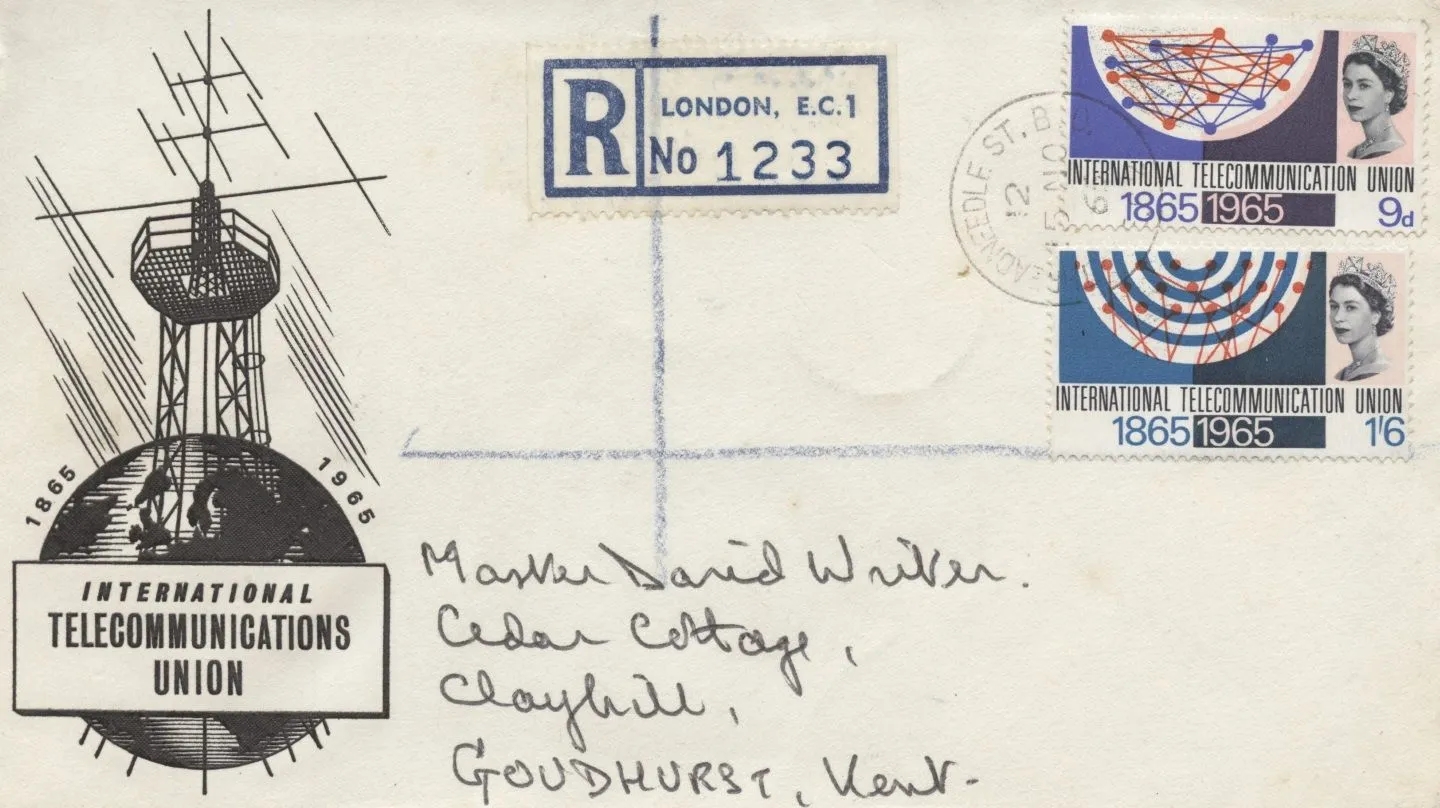 R
LONDON, E.C.1
No 1233
THREADNEEDLE ST. B.O.
12
15 NO
65
INTERNATIONAL TELECOMMUNICATION UNION
1865 1965
9d
INTERNATIONAL TELECOMMUNICATION UNION
1865 1965
1'6
1865 1965
INTERNATIONAL
TELECOMMUNICATIONS
UNION
Master David Writer.
Cedar Cottage,
Clayhill,
GOUDHURST, Kent.